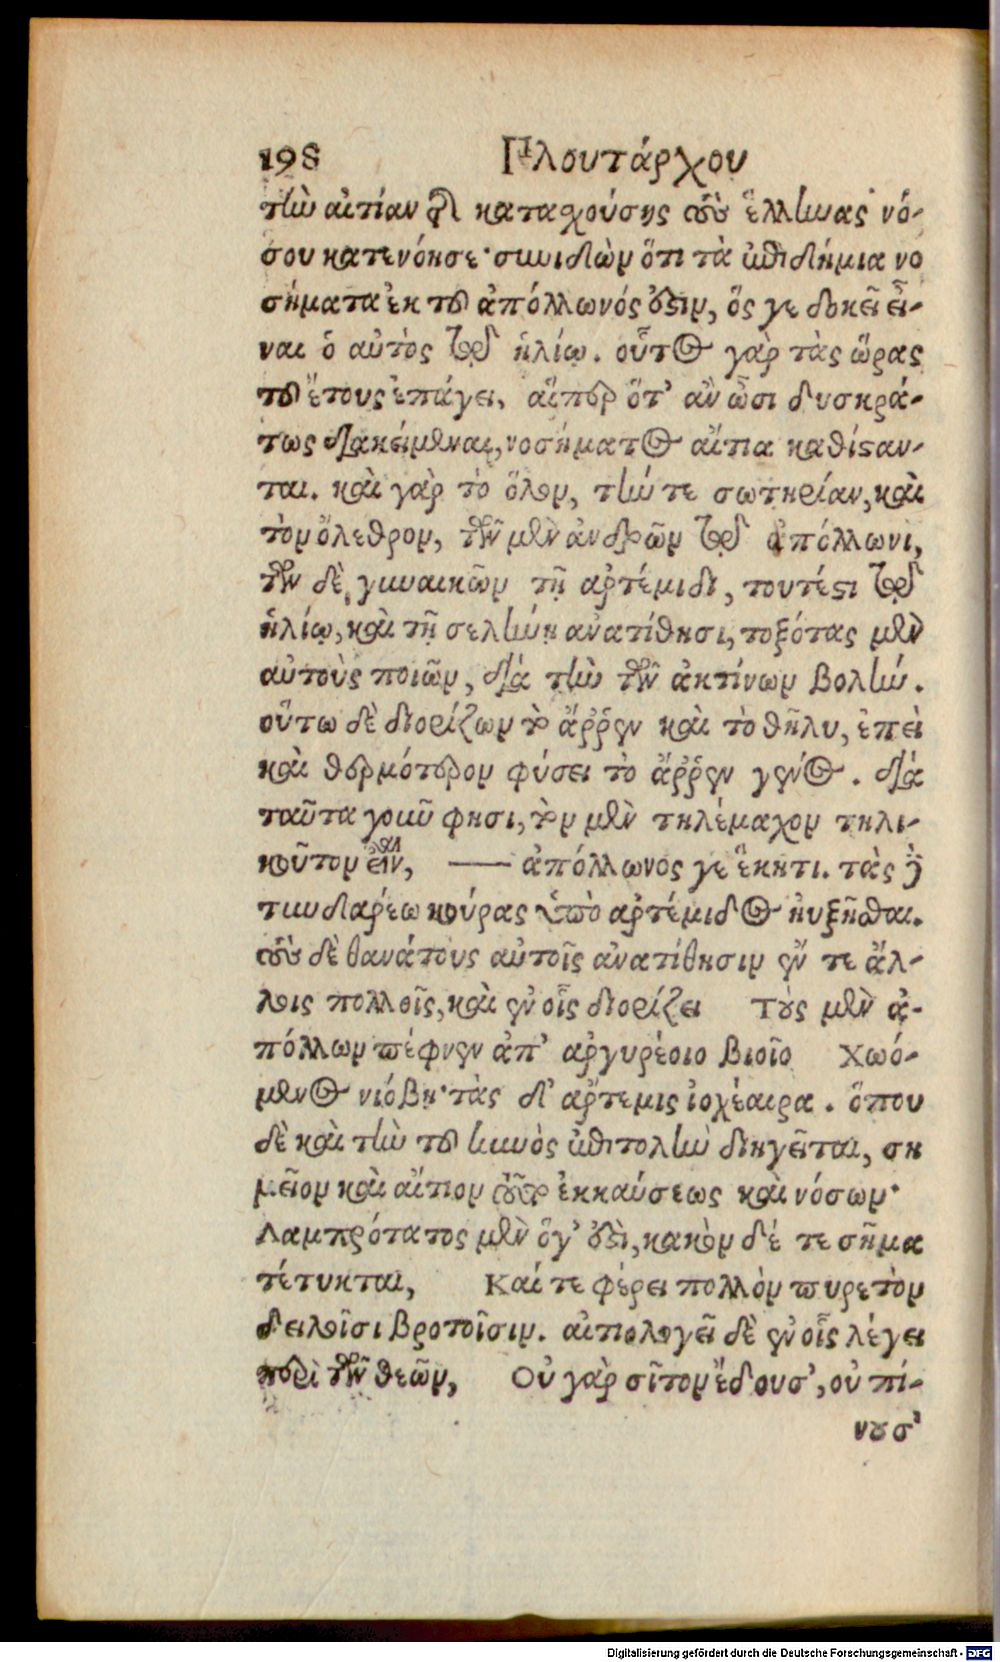 198 Πλουτάρχου
τὴν αἰτίαν τῆς κατασχούσης τοὺς ἕλληνας νό-
σου κατενόησε· συνιδὼν ὅτι τὰ ἐπιδήμια νο
σήματα ἐκ τοῦ ἀπόλλωνός ἐστιν, ὅς γε δοκεῖ εἶ-
ναι ὁ αὐτὸς τῷ ἡλίῳ. οὗτος γὰρ τὰς ὥρας
τοῦ ἔτους ἐπάγει, αἵπερ ὅτ' ἂν ὦσι δυσκρά-
τως διακείμεναι, νοσήματος αἴτια καθίσταν-
ται. καὶ γὰρ τὸ ὅλον, τήν τε σωτηρίαν, καὶ
τὸν ὄλεθρον, τῶν μὲν ἀνδρῶν τῷ ἀπόλλωνι,
τῶν δὲ γυναικῶν τῇ ἀρτέμιδι, τουτέστι τῷ
ἡλίῳ, καὶ τῇ σελήνῃ ἀνατίθησι, τοξότας μὲν
αὐτοὺς ποιῶν, διὰ τὴν τῶν ἀκτίνων βολήν.
οὕτω δὲ διορίζων τὸ ἄῤῥεν καὶ τὸ θῆλυ, ἐπεὶ
καὶ θερμότερον φύσει τὸ ἄῤῥεν γένος. διὰ
ταῦτα γοῦν φησι, τὸν μὲν τηλέμαχον τηλι-
κοῦτον εἶναι, — ἀπόλλωνός γε ἕκητι. τὰς δὲ
τυνδαρέω κούρας ὑπὸ ἀρτέμιδος ηὐξῆσθαι.
τοὺς δὲ θανάτους αὐτοῖς ἀνατίθησιν ἔν τε ἄλ-
λοις πολλοῖς, καὶ ἐν οἷς διορίζει Τοὺς μὲν ἀ-
πόλλων πέφνεν ἀπ' ἀργυρέοιο βιοῖο Χωό-
μενος νιόβῃ· τὰς δ' ἄρτεμις ἰοχέαιρα. ὅπου
δὲ καὶ τὴν τοῦ κυνὸς ἐπιτολὴν διηγεῖται, ση
μεῖον καὶ αἴτιον τοῦτο ἐκκαύσεως καὶ νόσων·
Λαμπρότατος μὲν ὅγ' ἐστὶ, κακὸν δέ τε σῆμα
τέτυκται, Καί τε φέρει πολλὸν πυρετὸν
δειλοῖσι βροτοῖσιν. αἰτιολογεῖ δὲ ἐν οἷς λέγει
περὶ τῶν θεῶν, Οὐ γὰρ σῖτον ἔδουσ', οὐ πί-
νουσ'
Digitalisierung gefördert durch die Deutsche Forschungsgemeinschaft - DFG